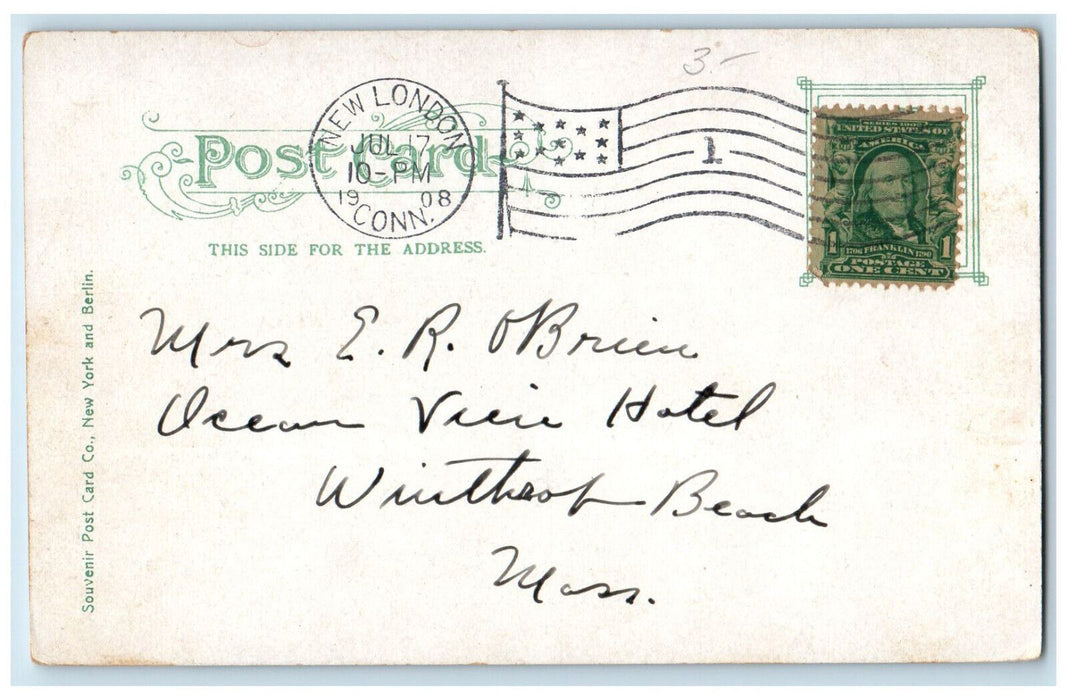 3.-
Post Card
NEW LONDON
JUL 17
10-PM
19 08
CONN.
1
SERIES 1902
UNITED STATES OF
AMERICA
1 1706 FRANKLIN 1790 1
POSTAGE
ONE CENT
THIS SIDE FOR THE ADDRESS.
Souvenir Post Card Co., New York and Berlin.
Mrs E. R. O'Brien
Ocean View Hotel
Winthrop Beach
Mass.